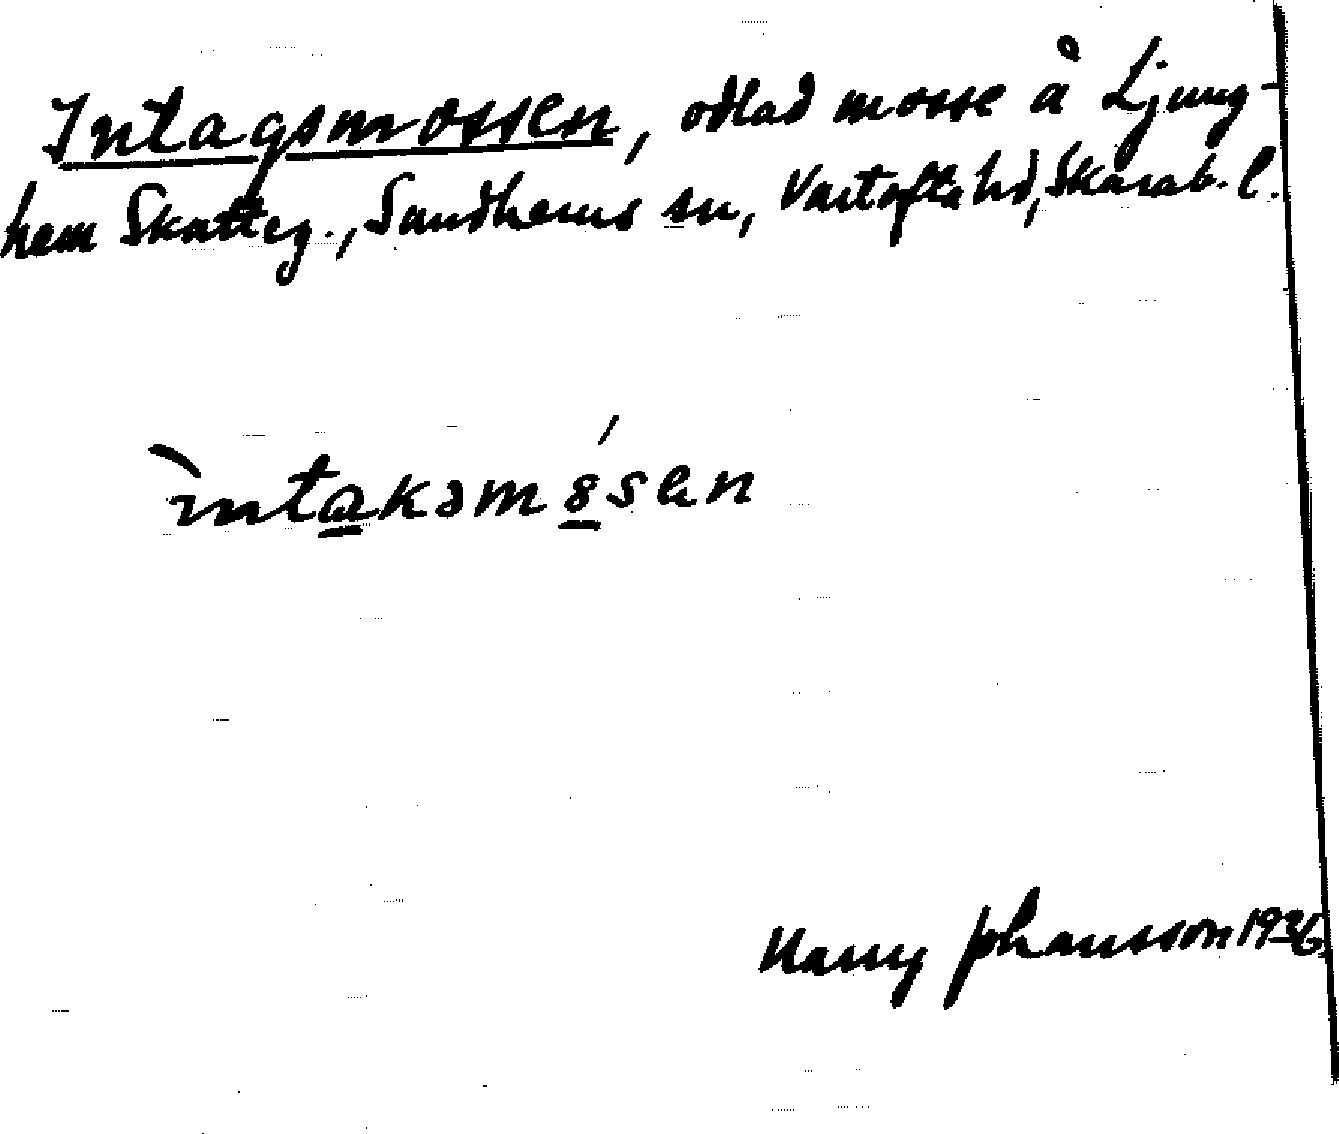 Intagsmossen, odlad mosse å Ljung-
hem Skatteg., Sandhems sn, Vartofta hd, Skarab. l.
ìntaksmósen
Harry Johansson 1936